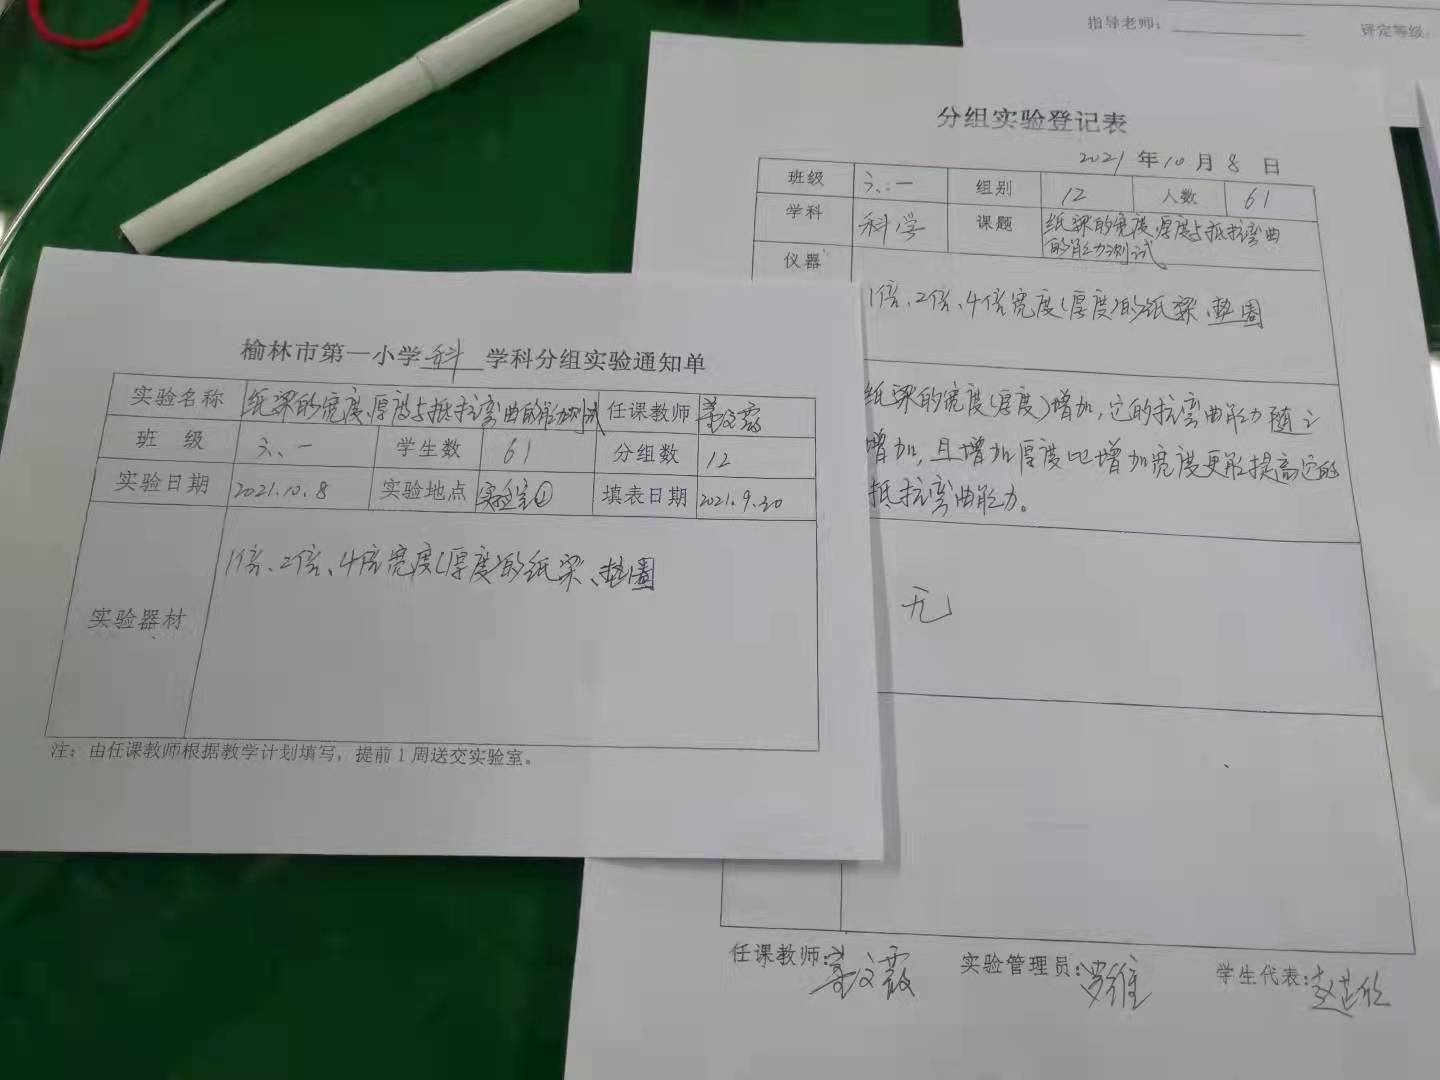 指导老师：
评定等级：
分组实验登记表
2021 年 10 月 8 日
班级 六.一 组别 12 人数 61
学科 科学 课题 纸梁的宽度、厚度与抵抗弯曲
的能力测试
仪器
1倍、2倍、4倍宽度(厚度)的纸梁、垫圈
纸梁的宽度(厚度)增加，它的抗弯曲能力随之
增加，且增加厚度比增加宽度更能提高它的
抵抗弯曲能力。
无
任课教师：
实验管理员：罗维
学生代表：赵
榆林市第一小学 科 学科分组实验通知单
实验名称 纸梁的宽度、厚度与抵抗弯曲的能力测试 任课教师
班 级 六、一 学生数 61 分组数 12
实验日期 2021.10.8 实验地点 实验室① 填表日期 2021.9.30
实验器材
1倍、2倍、4倍宽度(厚度)的纸梁、垫圈
注：由任课教师根据教学计划填写，提前 1 周送交实验室。